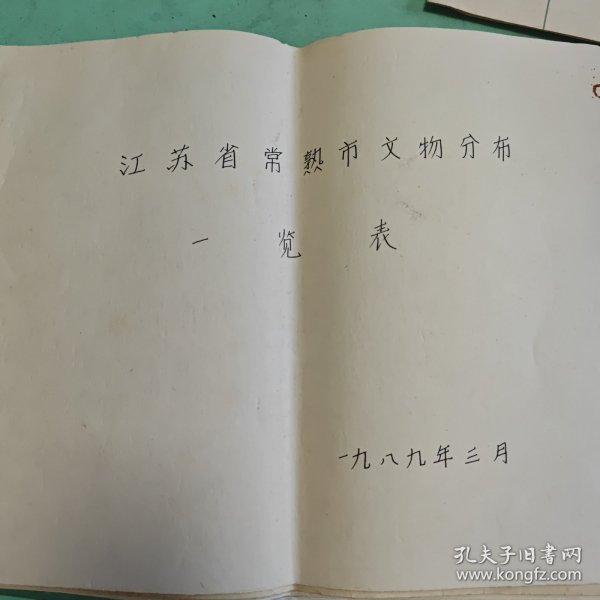 江苏省常熟市文物分布
一览表
一九八九年三月
孔夫子旧書网
www.kongfz.com